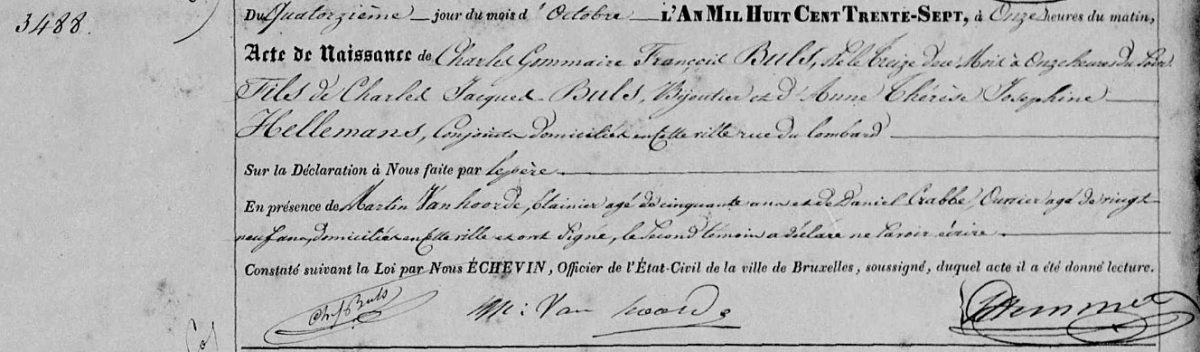 3488.
Du Quatorzième jour du mois d'Octobre L'AN MIL HUIT CENT TRENTE-SEPT, à Onze heures du matin,
Acte de Naissance de Charles Gommaire François Buls, né le treize du Mois à Onze heures du Soir
Fils de Charles Jacques Buls, Bijoutier et d'Anne Thérèse Josephine
Hellemans, Conjoints domiciliés en cette ville rue du lombard
Sur la Déclaration à Nous faite par le père
En présence de Martin Vanhoorde, Etainier agé de cinquante ans et de Daniel Crabbe, Ouvrier agé de vingt
neuf ans, domiciliés en cette ville et ont Signé, le Second témoin a déclaré ne savoir écrire
Constaté suivant la Loi par Nous ÉCHEVIN, Officier de l'État-Civil de la ville de Bruxelles, soussigné, duquel acte il a été donné lecture.
Chs Buls M: Van hoorde